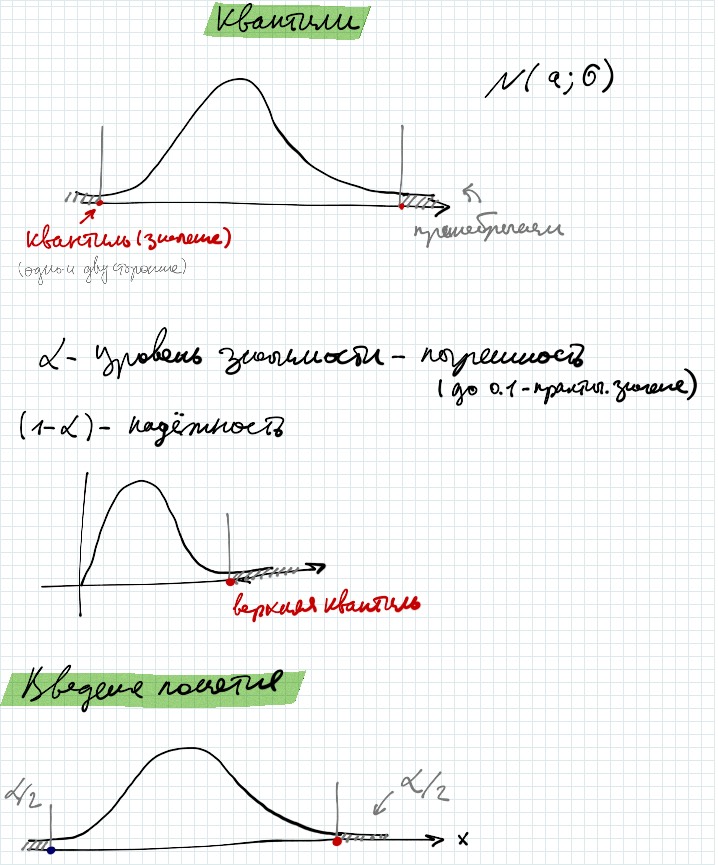 Квантили
N(a; σ)
квантиль (значение)
(одно и двусторонние)
пренебрегаем
α - уровень значимости - погрешность
(до 0.1 - практич. значение)
(1-α) - надёжность
верхняя квантиль
Введение понятия
α/2
α/2
x